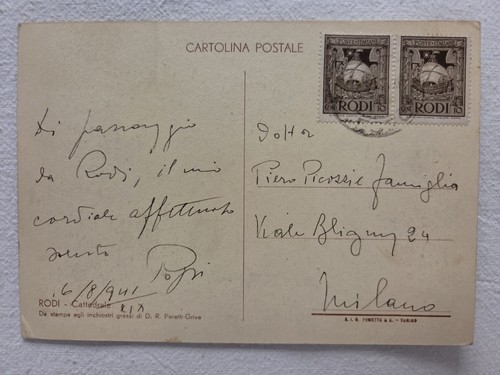 CARTOLINA POSTALE
POSTE ITALIANE
RODI
POSTE ITALIANE
RODI
Di passaggio
da Rodi, il mio
cordiale affettuoso
saluto
6/8/941
RODI - Cattedrale
Da stampe agli inchiostri grassi di D. R. Peretti-Griva
Dottor
Piero Picozzi e famiglia
Viale Bligny 24
Milano